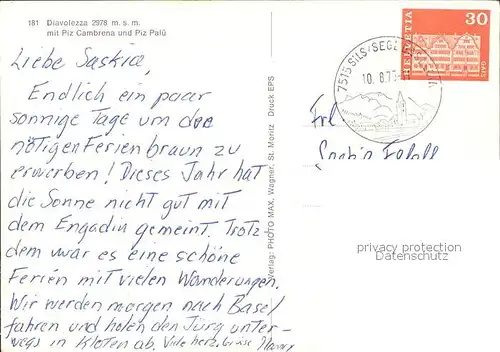 181 Diavolezza 2978 m. s. m.
mit Piz Cambrena und Piz Palü
Liebe Saskia,
Endlich ein paar
sonnige Tage um die
nötigen Ferienbraun zu
erwerben! Dieses Jahr hat
die Sonne nicht gut mit
dem Engadin gemeint. Trotz-
dem war es eine schöne
Ferien mit vielen Wanderungen.
Wir werden morgen nach Basel
fahren und holen den Jürg unter-
wegs in Kloten ab. Viele herz. Grüsse
Verlag: PHOTO MAX, Wagner, St. Moritz Druck EPS
7515 SILS/SEGL
10. 8.73
HELVETIA
30
Frl
privacy protection
Datenschutz